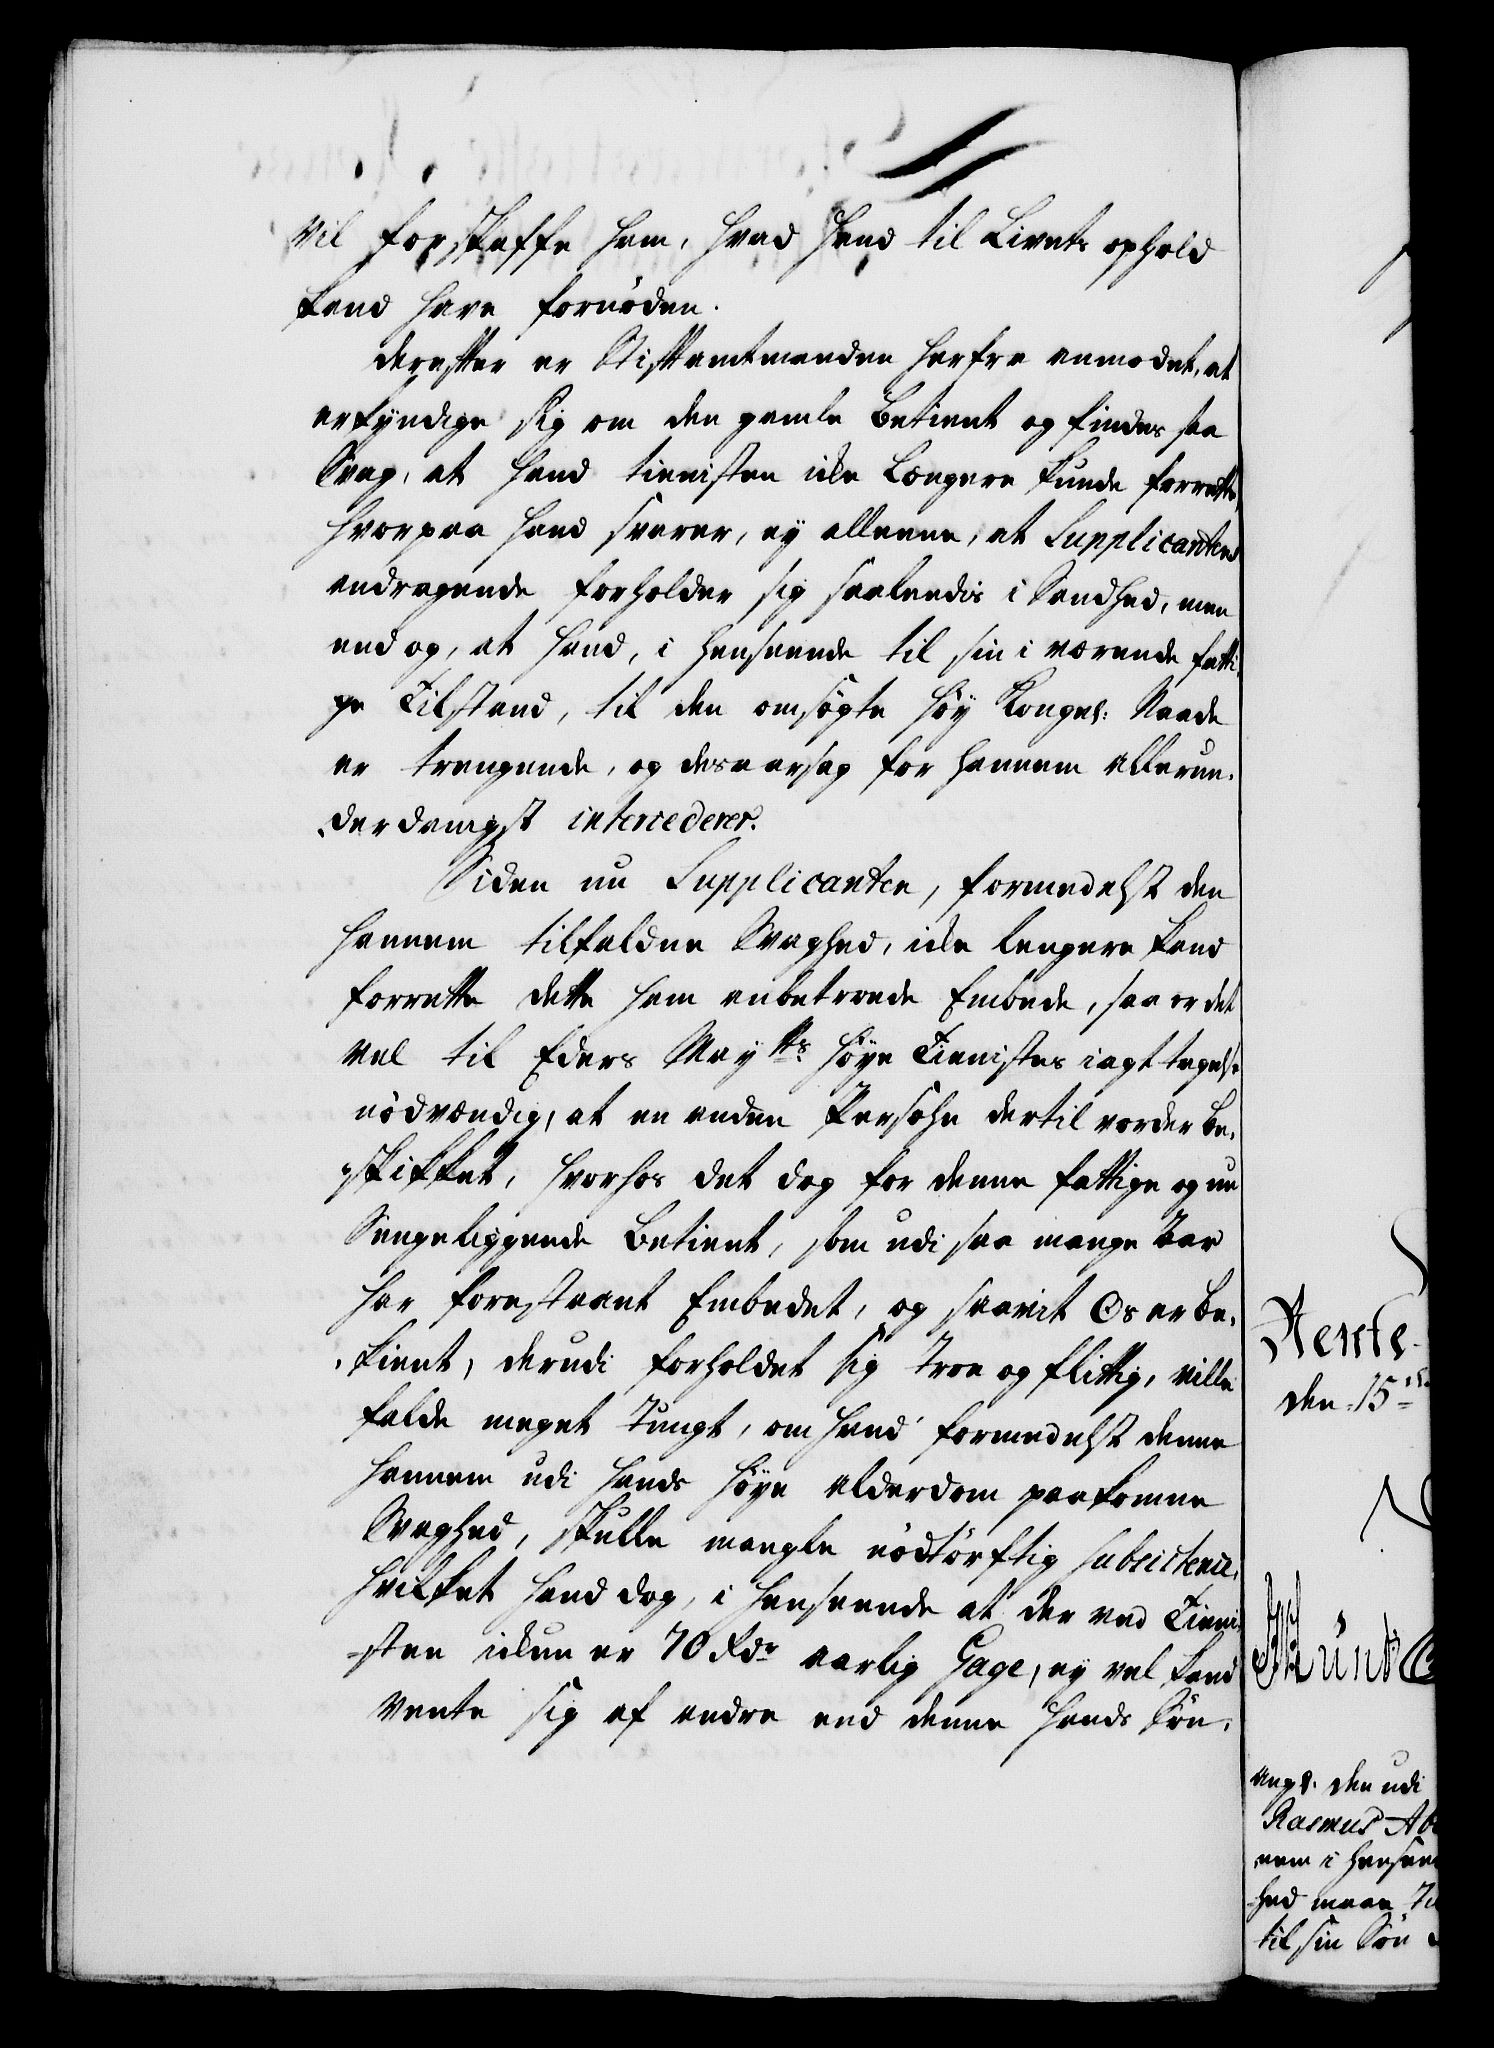 vil forskaffe ham, hvad hand til Livets ophold
kand have fornöden.
derefter er Stiftamtmanden herfra anmodet, at
erkyndige sig om den gamle Betient og findes saa
Svag, at hand tienisten icke Længere kunde forrette,
hvorpaa hand svarer, ey alleene, at Supplicantens
andragende forholder sig saaledis i Sandhed, men
end og, at hand, i henseende til sin i værende fatti,
ge Tilstand, til den omsögte höy Kongel: Naade
er trengende, og desaarsag for hannem allerun,
derdanigst intercederer.
Siden nu Supplicanten, formedelst den
hannem tilfaldne Svaghed, icke lengere kand
forrette dette ham anbetroede Embede, saa er det
vel til Eders Mayts höye Tienistes iagttagelse
nödvændig, at en anden Persohn dertil vorder be,
skikket, hvorhos det dog for denne fattige og nu
Sengeliggende Betient, som udi saa mange Aar
har forestaaet Embedet, og saavit Os er be,
kient, derudi forholdet sig troe og flittig, ville
falde meget tungt, om hand formedelst denne
hannem udi hands höye alderdom paakomne
Svaghed, skulle mangle nödtörftig subsistence,
hvilket hand dog, i henseende at der ved Tieni,
-sten ickun er 70 Rdr aarlig Gage, ey vel kand
vente sig af andre end denne hands Sön.
Rente-
den 15
angl. den udi
Rasmus
nem i hensee
-hed maae
til sin Sön